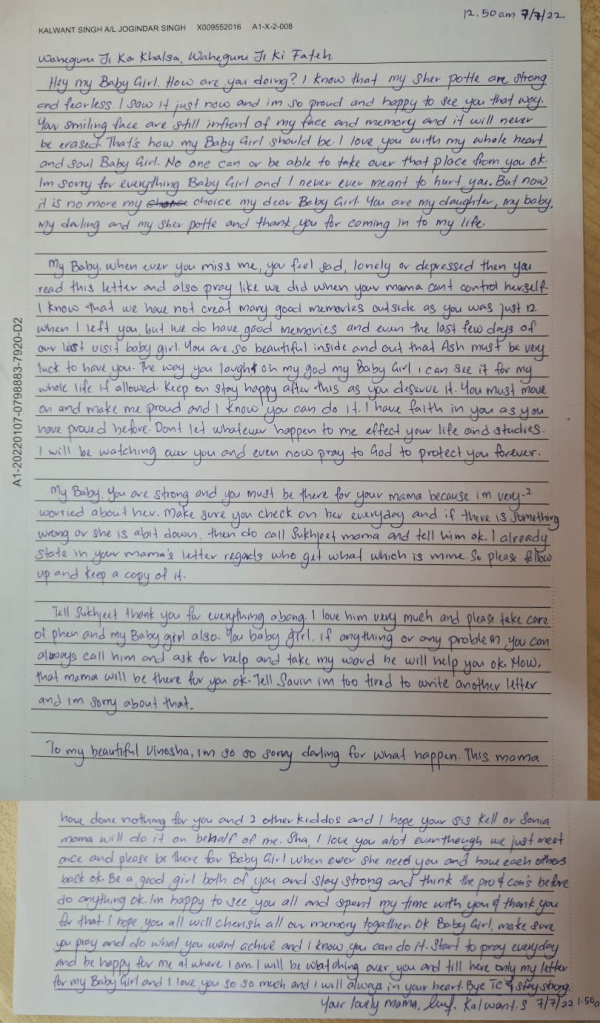 12.50am 7/7/22
KALWANT SINGH A/L JOGINDAR SINGH X009552016 A1-X-2-008
Waheguru Ji Ka Khalsa, Waheguru Ji Ki Fateh
Hey my Baby Girl. How are you doing? I know that my sher potte are strong
and fearless. I saw it just now and im so proud and happy to see you that way.
Your smiling face are still infront of my face and memory and it will never
be erased. That's how my Baby Girl should be. I love you with my whole heart
and soul Baby Girl. No one can or be able to take over that place from you ok.
Im sorry for everything Baby Girl and I never ever meant to hurt you. But now
it is no more my choice my dear Baby Girl. You are my daughter, my baby,
my darling and my sher potte and thank you for coming in to my life.
My Baby, when ever you miss me, you feel sad, lonely or depressed then you
read this letter and also pray like we did when your mama cant control herself.
I know that we have not creat many good memories outside as you was just 12
when I left you but we do have good memories and even the last few days of
our last visit baby girl. You are so beautiful inside and out that Ash must be very
luck to have you. The way you laugh oh my god my Baby Girl i can see it for my
whole life if allowed. Keep on stay happy after this as you deserve it. You must move
on and make me proud and I know you can do it. I have faith in you as you
have proved before. Dont let whatever happen to me effect your life and studies.
I will be watching over you and even now pray to God to protect you forever.
A1-20220107-0798883-7920-D2
My Baby. You are strong and you must be there for your mama because im very-2
worried about her. Make sure you check on her everyday and if there is something
wrong or she is abit down, then do call Sukhjeet mama and tell him ok. I already
state in your mama's letter regards who get what which is mine. So please follow
up and keep a copy of it.
Tell Sukhjeet thank you for everything abang. I love him very much and please take care
of phen and my Baby girl also. You baby girl, if anything or any problem you can
always call him and ask for help and take my word he will help you ok. Now,
that mama will be there for you ok. Tell Savin im too tired to write another letter
and im sorry about that.
To my beautiful Vinosha, im so so sorry darling for what happen. This mama
have done nothing for you and 2 other kiddos and I hope your sis Kell or Sonia
mama will do it on behalf of me. Sha, I love you alot eventhough we just meet
once and please be there for Baby Girl when ever she need you and have each others
back ok. Be a good girl both of you and stay strong and think the pro & con's before
do anything ok. Im happy to see you all and spent my time with you & thank you
for that. I hope you all will cherish all our memory together. Ok Baby Girl, make sure
you pray and do what you want achive and I know you can do it. Start to pray everyday
and be happy for me at where I am. I will be watching over you and till here only my letter
for my Baby Girl and I love you so so much and I will always in your heart. Bye TC & stay strong.
Your lovely mama, Kalwant.S 7/7/22 1.50a